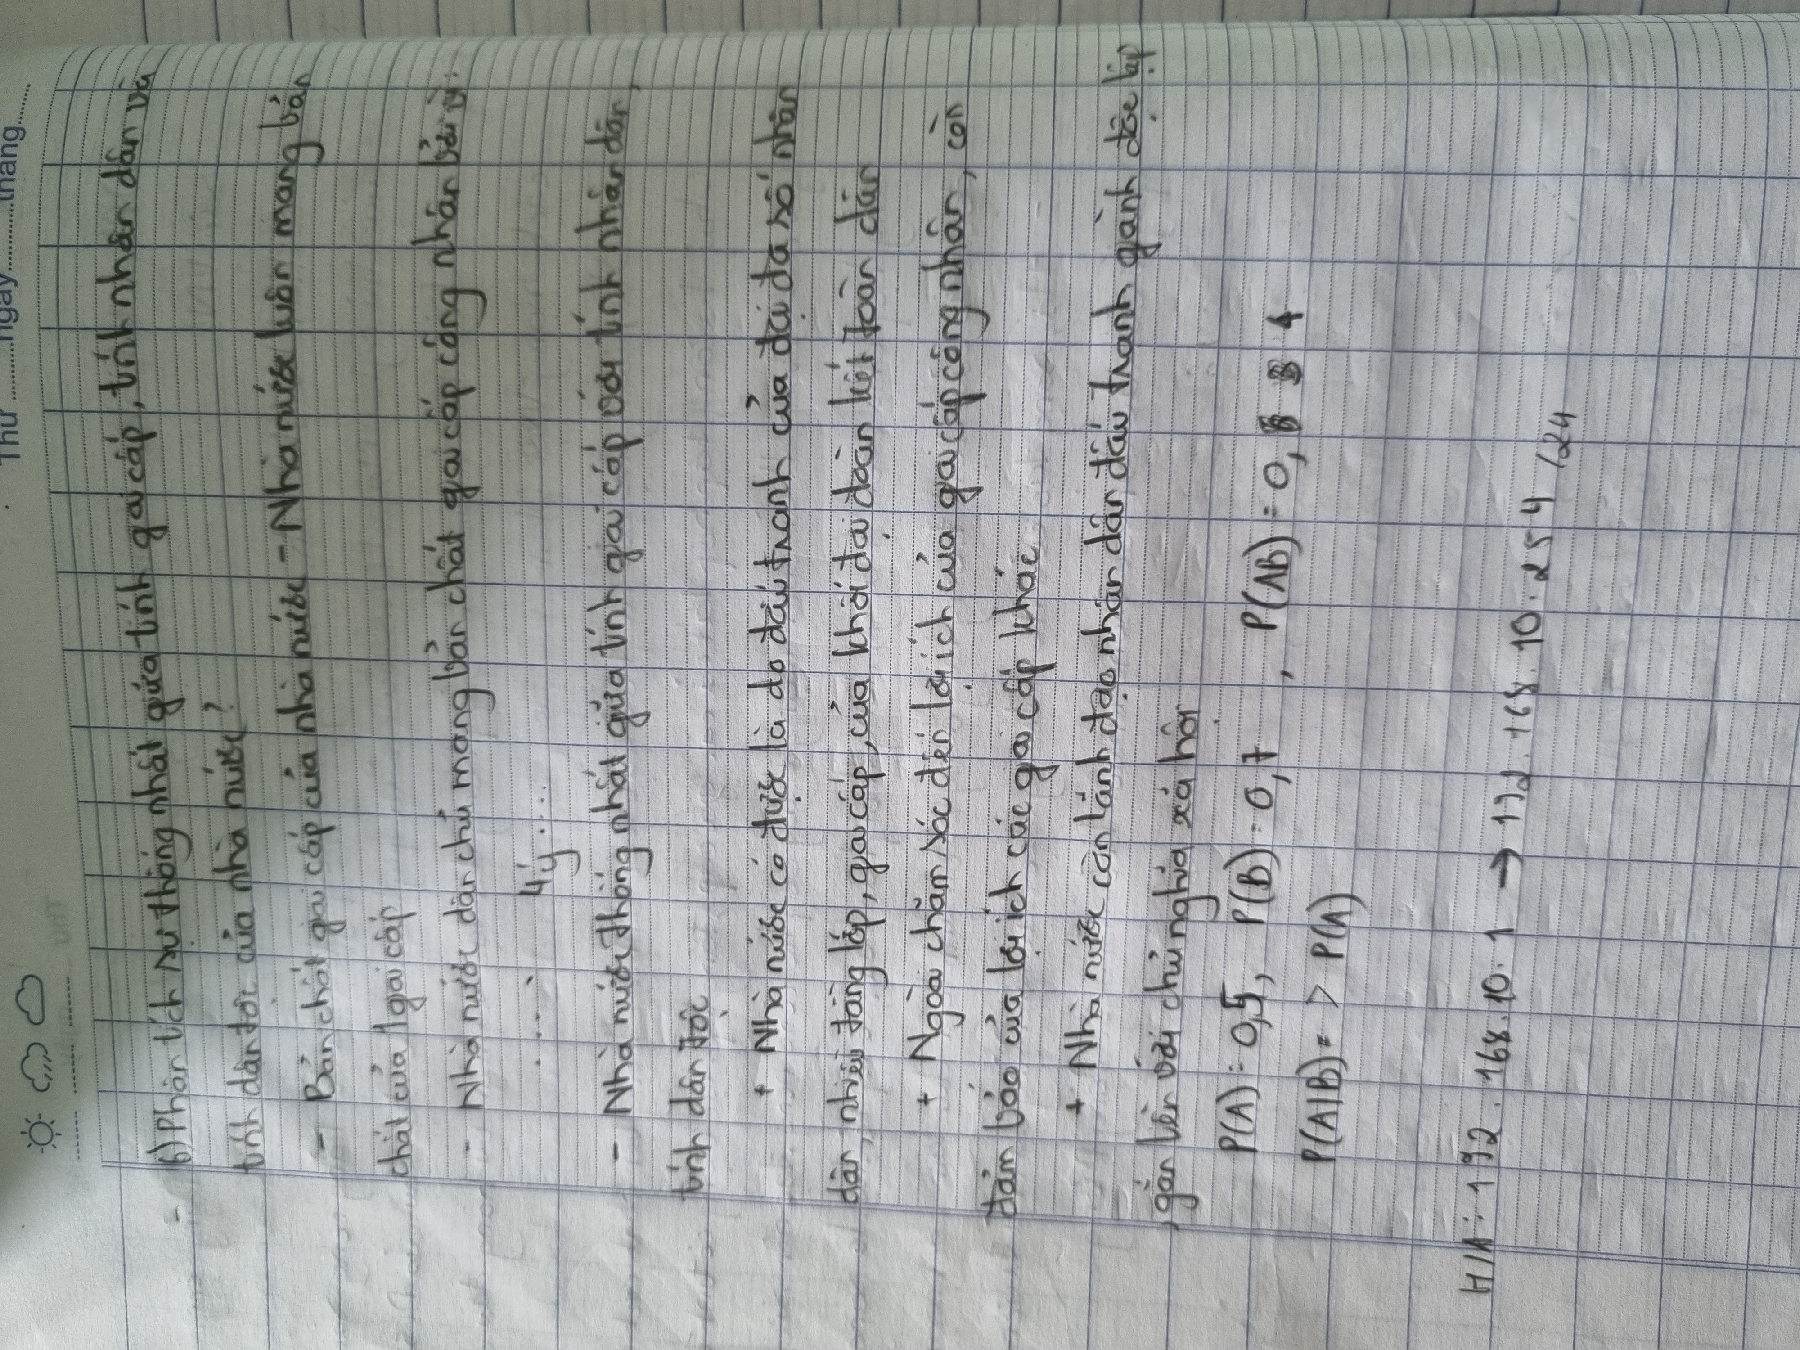 Thứ ..........ngày............tháng.......
6) Phân tích sự thống nhất giữa tính gai cấp, tính nhân dân và
tính dân tộc của nhà nước?
- Bản chất giai cấp của nhà nước - Nhà nước luôn mang bản
chất của 1 gai cấp
- Nhà nước dân chủ mang bản chất gai cấp công nhân bởi vì:
..... 4 ý ....
- Nhà nước thống nhất giữa tính giai cấp với tính nhân dân,
tính dân tộc
+ Nhà nước có được là do đấu tranh của đại đa số nhân
dân, nhiều tầng lớp, gai cấp, của khối đại đoàn kết toàn dân
+ Ngoài chăm sóc đến lợi ích của gai cấp công nhân, còn
đảm bảo của lợi ích các gai cấp khác
+ Nhà nước còn lãnh đạo nhân dân đấu tranh giành độc lập
, gắn liền với chủ nghĩa xã hội
P(A) = 0,5, P(B) = 0,7 , P(AB) = 0,
P(A|B) = > P(A)
192.168.10.1 → 192.168.10.254 /24